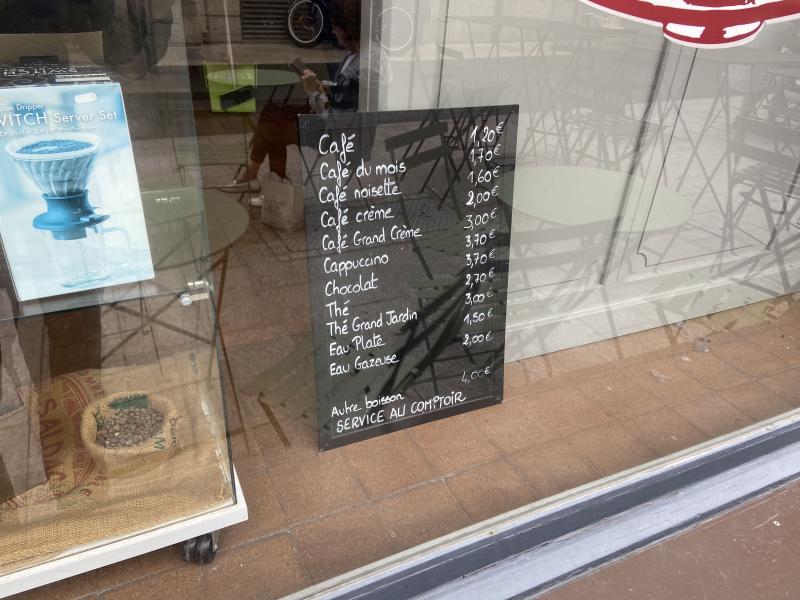 Dripper
WITCH Server Set
Café 1,20€
Café du mois 1,70€
Café noisette 1,60€
Café crème 2,00€
Café Grand Crème 3,00€
Cappuccino 3,70€
Chocolat 3,70€
Thé 2,70€
Thé Grand Jardin 3,00€
Eau Plate 1,50€
Eau Gazeuse 2,00€
Autre boisson 4,00€
SERVICE AU COMPTOIR